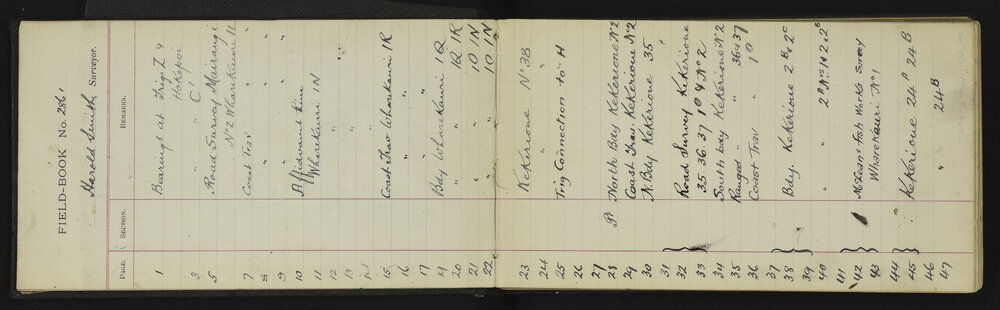 FIELD-BOOK No. 286'
Harold Smith, Surveyor.
PAGE. SECTION. REMARKS.
1 Bearings at Trig: Z 4
Hokopoi
3 " " C'
5 Road Survey Mairangi
" No 2 Wharekauri 11
7 Coast Trav "
8 "
9 "
10 Affidavit Line "
11 Wharekauri 1N
12 "
13 "
14 "
15 Coast Trav Wharekauri 1R
16 "
17 "
19 Bdy Wharekauri 1Q
20 " 1Q 1R
21 " 1O 1N
22 " 1O 1N
23 Kekerione No 3B
24 " "
25 Trig Connection to H
26
27
28 Pt North Bdy Kekerione No 2
29 Coast Trav. Kekerione No 2
30 N. Bdy Kekerione 35
31
32 Road Survey Kekerione
33 35 36 37 1O & No 2
34 South bdy Kekerione No 2
35 Ranged " " 36 & 37
36 Coast Trav " 1O
37
38 Bdy. Kekerione 2B & 2C
39
40 " " 2D Nos 1A 2 & 2B
41
42 McLean's Fish Works Survey
43 Wharekauri No 1
44
45 Kekerione 24 D 24 B
46
47 " 24 B